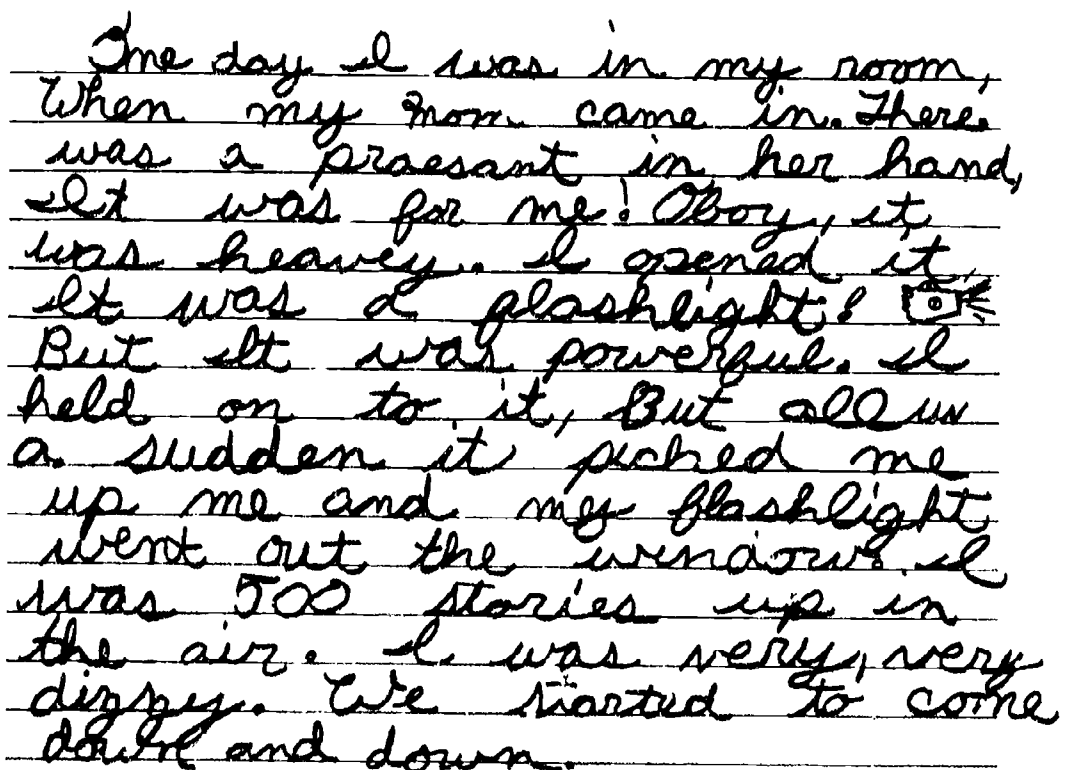 One day I was in my room,
When my mom came in. There
was a praesant in her hand,
It was for me! Oboy, it
was heavey. I opened it,
It was a flashlight!
But It was powerful. I
held on to it, But all
a sudden it picked me
up me and my flashlight
went out the window. I
was 500 stories up in
the air. I was very, very
dizzy. We started to come
down and down.